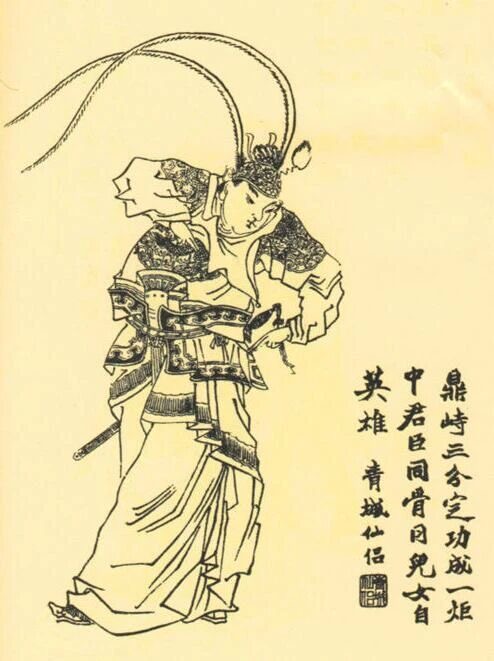 鼎峙三分定功成一炬
中君臣同骨肉兒女自
英雄 青城仙侶